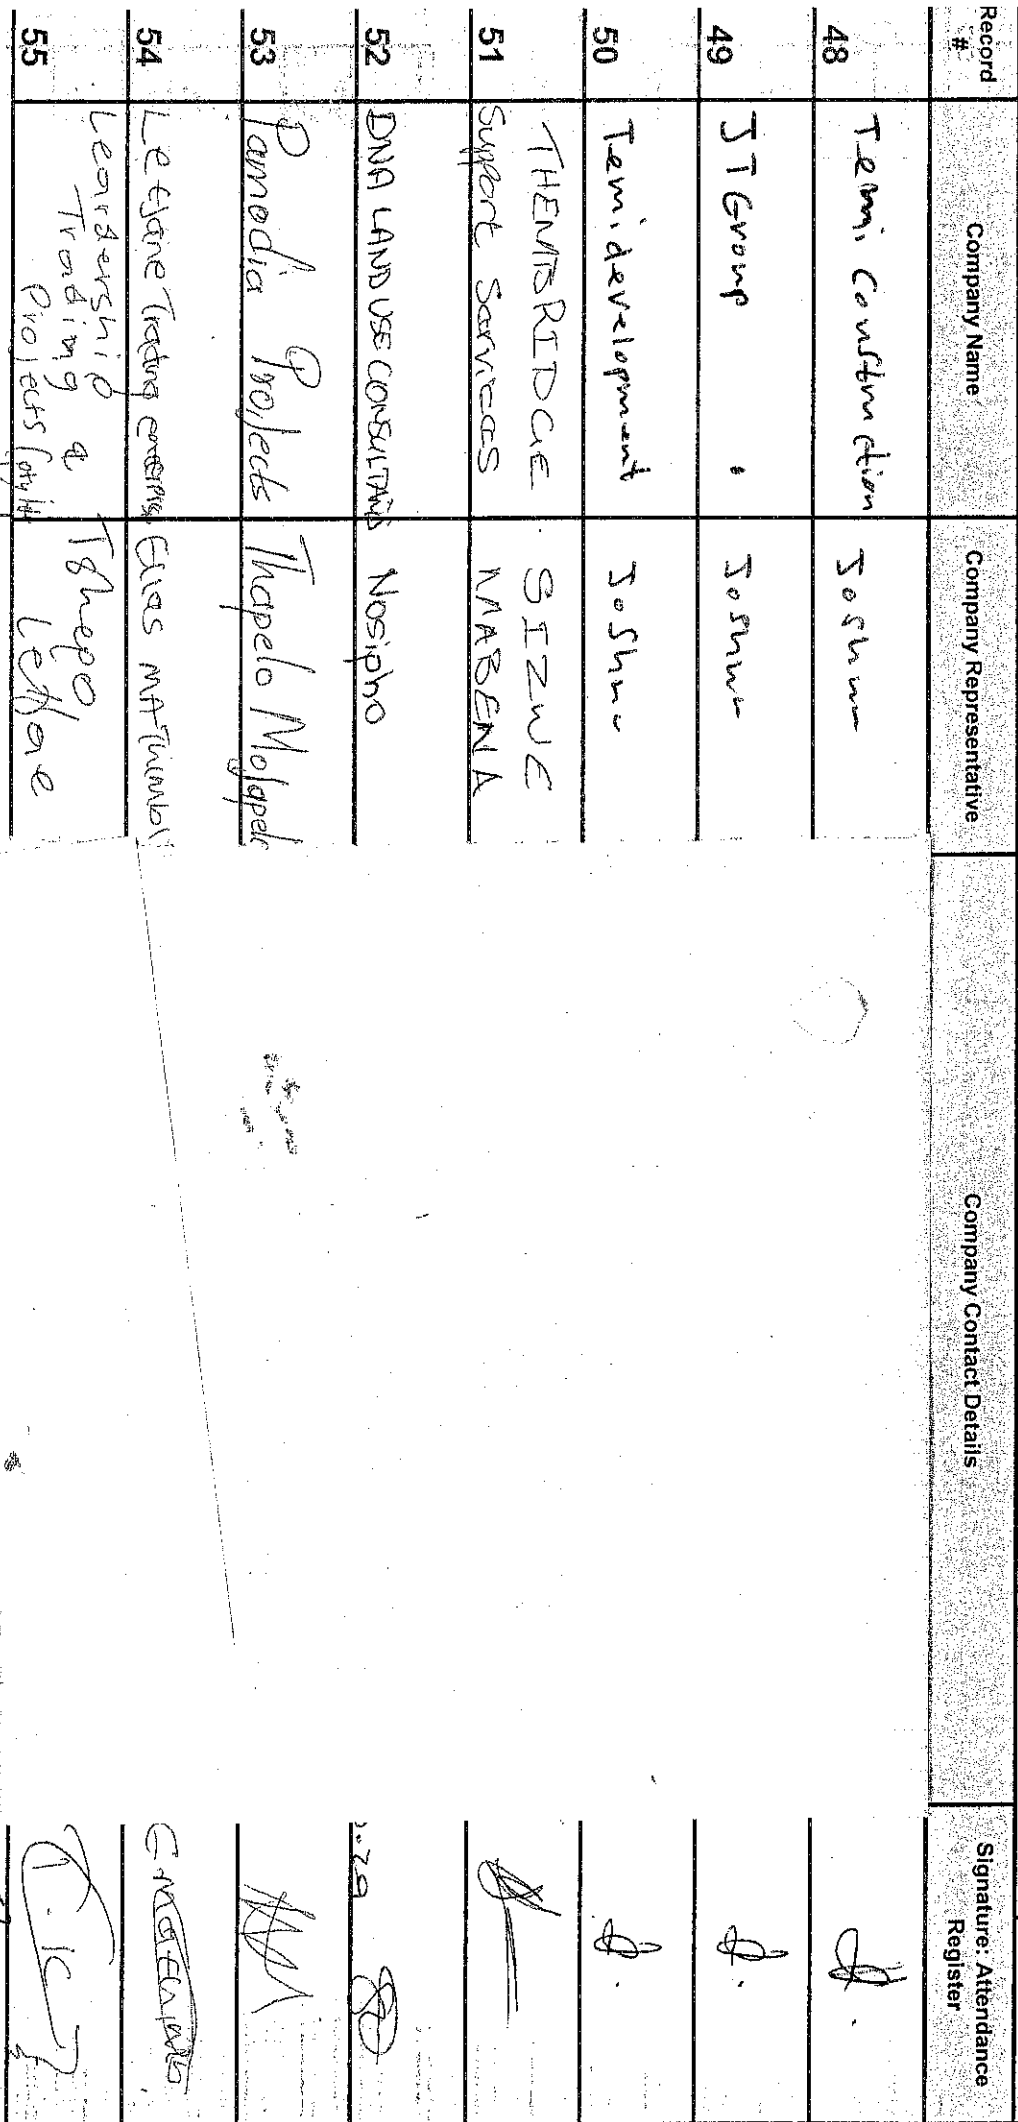 Record # Company Name Company Representative Company Contact Details Signature: Attendance Register
48 Temi Construction Joshua
49 JT Group Joshua
50 Temi development Joshua
51 THEMBRIDGE SIZWE
Support Services MABENA
52 DNA LAND USE CONSULTANTS Nosipho
53 Pamodia Projects Thapelo Molapelo
54 Letjane Trading enterprise Elias
55 Leardership Tshepo
Trading & Letlore
Projects